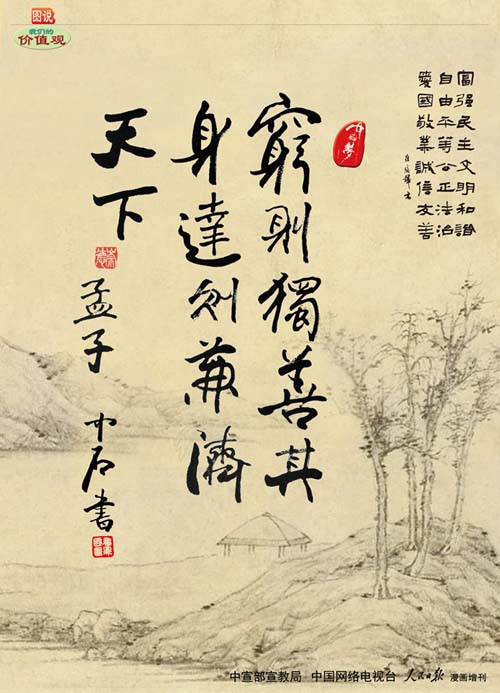 图说
我们的
价值观
富强民主文明和谐
自由平等公正法治
爱國敬業誠信友善
中国梦
窮則獨善其
身達則兼濟
天下
孟子 中石書
中宣部宣教局 中国网络电视台 人民日报 漫画增刊